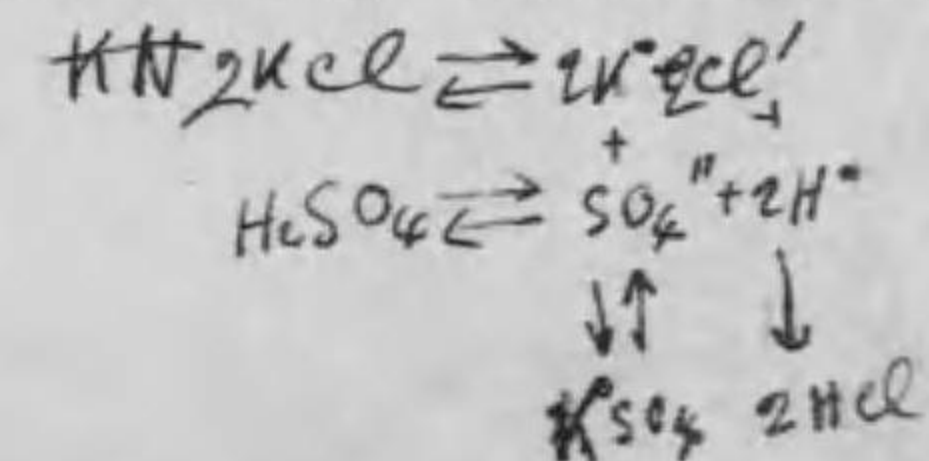 2KCl ⇌ 2K• 2Cl′
+ +
H2SO4 ⇌ SO4″ + 2H•
↓↑ ↓
K•SO4 2HCl